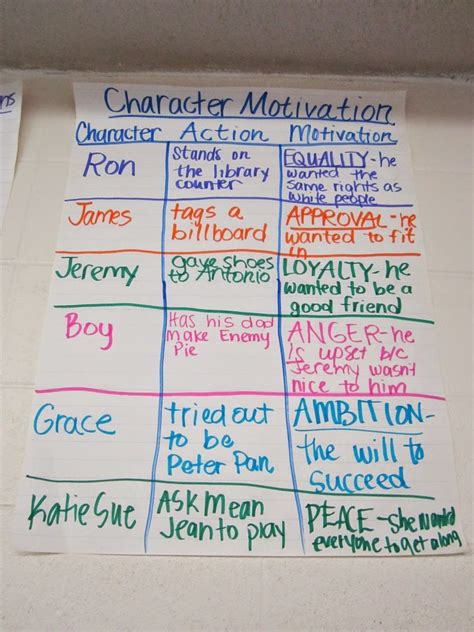 ns
Character Motivation
Character Action Motivation
Ron
Stands on
the library
counter
EQUALITY-he
wanted the
same rights as
white people
James
tags a
billboard
APPROVAL-he
wanted to fit
in
Jeremy
gave shoes
to Antonio
LOYALTY-he
wanted to be a
good friend
Boy
Has his dad
make Enemy
Pie
ANGER-he
is upset b/c
Jeremy wasnt
nice to him
Grace
tried out
to be
Peter Pan
AMBITION-
the will to
succeed
Katie Sue
ASK Mean
Jean to play
PEACE-she wanted
everyone to get along